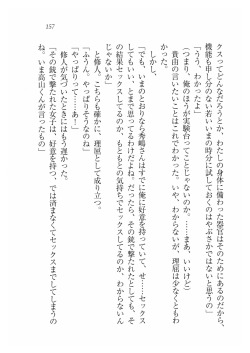 157
クスってどんなだろうとか、わたしの身体に備わった器官はそのためにあるのだから、
機能も申し分のない若いいまの間分に試しておくのはやぶさかではないと思うの」
「うう、わかった……」
（つまり、俺のほうが実験台ってことじゃないのか。……まあ、いいけど）
貴由の言いたいことはこれでわかった。いや、わからないが、理屈は少なくともわ
かった。
「でも、いまのとおりなら秀嶋さんはすでに俺に好意を持っていて、せ……セックス
してもいい、とまで思ってるわけだよね。だったら、その銃で撃たれたとしても、そ
の結果セックスしてるのか、もともとの気持ちでセックスしてるのか、わからないん
じゃないか」
と修人。こちらも確かに、理屈として成り立つ。
「ふうん。やっぱりそうなのね」
「やっぱりって……あ！」
修人が気づいたときにはもう遅かった。
「その銃で撃たれた女子は、好意を持つ、では済まなくてセックスまでしてしまうの
ね。いま高山くんが言ったもの」